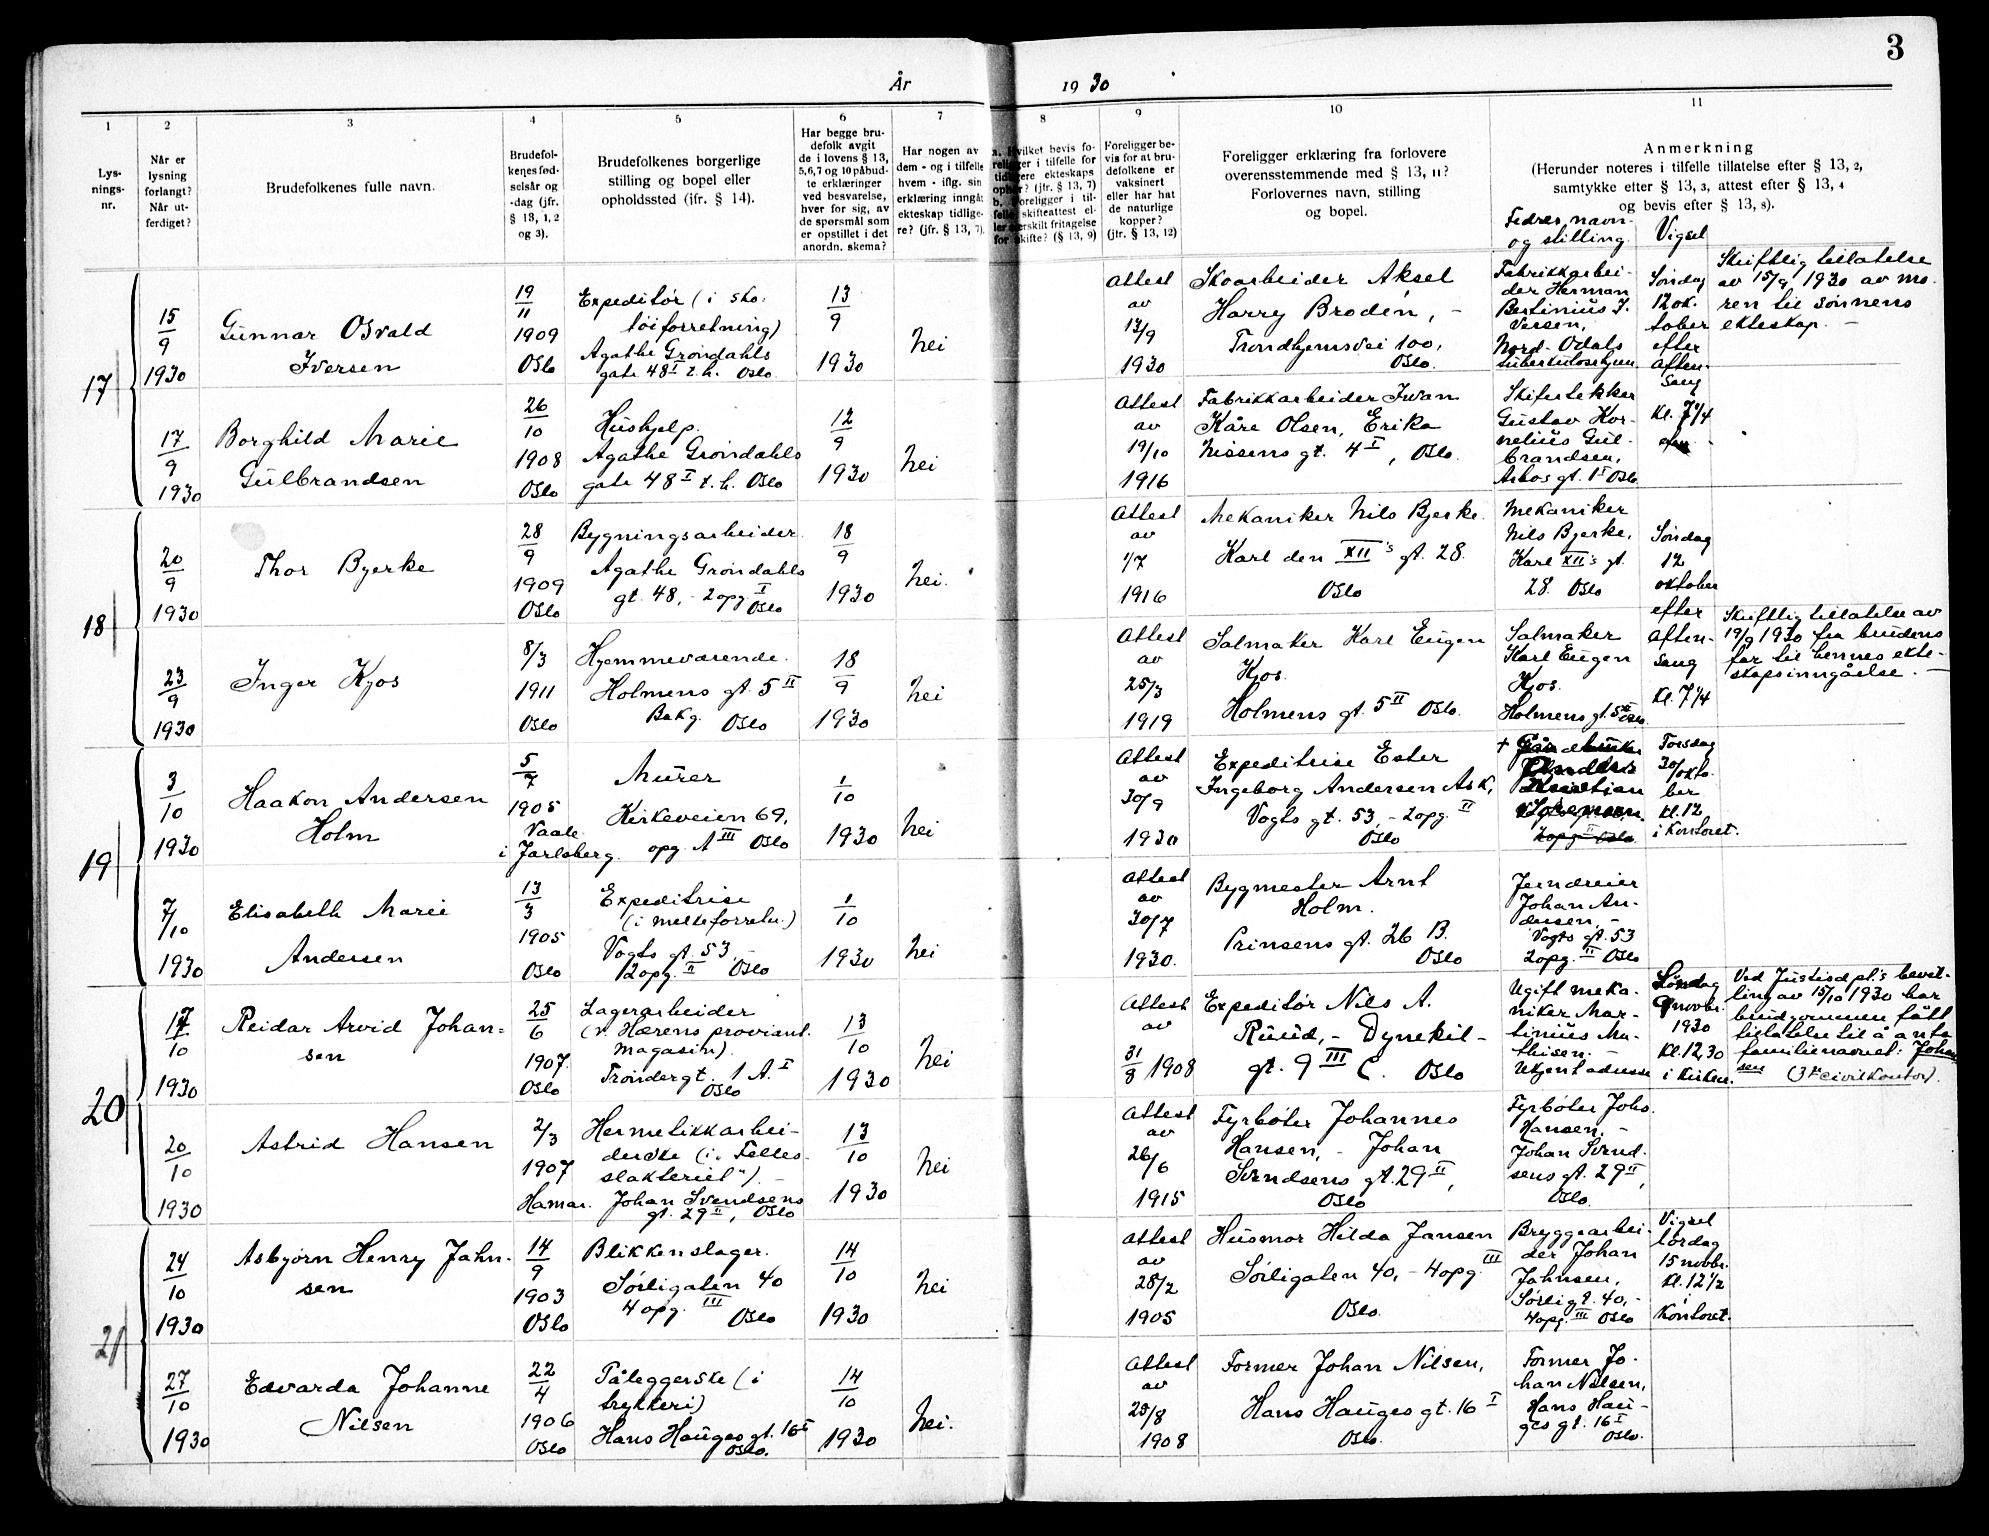 3
År 1930
1
Lysningsnr.
2
Når er lysning forlangt? Når utferdiget?
3
Brudefolkenes fulle navn.
4
Brudefolkenes fødselsår og -dag (jfr. § 13, 1, 2 og 3).
5
Brudefolkenes borgerlige stilling og bopel eller opholdssted (ifr. § 14).
6
Har begge brudefolk avgit de i lovens § 13, 5,6,7 og 10 påbudte erklæringer ved besvarelse, hver for sig, av de spørsmål som er opstillet i det anordn. skema?
7
Har nogen av dem - og i tilfelle hvem - iflg. sin erklæring inngåt ekteskap tidligere? (jfr. § 13, 7).
8
a. Hvilket bevis foreligger i tilfelle for tidligere ekteskaps ophør? (jfr. § 13, 7)
b. Foreligger i tilfelle skifteattest eller særskilt fritagelse for skifte? (§ 13, 9)
9
Foreligger bevis for at brudefolkene er vaksinert eller har hat de naturlige kopper? (jfr. § 13, 12)
10
Foreligger erklæring fra forlovere overensstemmende med § 13, 11?
Forlovernes navn, stilling og bopel.
11
Anmerkning
(Herunder noteres i tilfelle tillatelse efter § 13, 2, samtykke efter § 13, 3, attest efter § 13, 4 og bevis efter § 13, 8).
Fedres navn og stilling.
Vigsel
17
15/9 1930
Gunnar Osvald
Iversen
19/11 1909 Oslo
Expeditør (i sko-
tøiforretning)
Agathe Grøndahls
gate 48 I t.h. Oslo
13/9 1930
Nei
Attest av 13/9 1930
Skoarbeider Aksel
Harry Broden, -
Trondhjemsvei 100,
Oslo.
Fabrikkarbei-
der Herman
Bertinius I-
versen,
Nord-Odals
tuberkulosehjem
Søndag
12 ok-
tober
efter
aften-
sang
Kl. 7 1/4
Skriftlig tillatelse
av 15/9 1930 av mo-
ren til sønnens
ekteskap. -
17/9 1930
Borghild Marie
Gulbrandsen
26/10 1908 Oslo
Hushjelp.
Agathe Grøndahls
gate 48 I t.h. Oslo
12/9 1930
Nei
Attest av 19/10 1916
Fabrikkarbeider Iwan
Kåre Olsen, Erika
Nissens gt. 4 I, Oslo.
Skifertekker
Gustav Kor-
nelius Gul-
brandsen,
Arbos gt. 1 I Oslo
18
20/9 1930
Thor Bjerke
28/9 1909 Oslo
Bygningsarbeider.
Agathe Grøndahls
gt. 48, - 2opg. I
Oslo
18/9 1930
Nei.
Attest av 1/7 1916
Mekaniker Nils Bjerke.
Karl den XII's gt. 28.
Oslo
Mekaniker
Nils Bjerke,
Karl XII's gt.
28. Oslo
Søndag
12
oktober
efter
aften-
sang
Kl. 7 1/4
23/9 1930
Inger Kjos
8/3 1911 Oslo
Hjemmeværende.
Holmens gt. 5 II
Bakg. Oslo
18/9 1930
Nei
Attest av 25/3 1919
Salmaker Karl Eugen
Kjos.
Holmens gt. 5 II Oslo.
Salmaker
Karl Eugen
Kjos.
Holmens gt. 5 II Oslo.
Skriftlig tillatelse av
19/9 1930 fra brudens
far til hennes ekte-
skapsinngåelse. -
19
3/10 1930
Haakon Andersen
Holm
5/7 1905
Vaale
i Jarlsberg.
Murer
Kirkeveien 69,
opg. A III Oslo
1/10 1930
Nei
Attest av 30/9 1930
Expeditrise Ester
Ingeborg Andersen Ask,
Vogts gt. 53, - 2opg. II
Oslo
+ Gårdbruker
2opg. II Oslo.
Torsdag
30/okto-
ber
kl. 12
i Kontoret.
7/10 1930
Elisabeth Marie
Andersen
13/3 1905 Oslo
Expeditrise
(i melkeforretn.)
Vogts gt. 53 -
2opg. II Oslo
1/10 1930
Nei
Attest av 30/7 1930.
Bygmester Arnt
Holm.
Prinsens gt. 26 B.
Oslo
Jerndreier
Johan An-
dersen, -
Vogts gt. 53
2opg. II Oslo
20
17/10 1930
Reidar Arvid Johan-
sen
25/6 1907. Oslo
Lagerarbeider
(v. Hærens proviant-
magasin).
Trondergt. 1 A. I
Oslo
13/10 1930
Nei
Attest av 31/8 1908
Expeditør Nils A.
Ruud, - Dynekil-
gt. 9 III C. Oslo
Ugift meka-
niker Mar-
tinius Ma-
thisen. -
Ukjent adresse
Søndag
9 novbr.
1930
Kl. 12,30
i kirken.
Ved Justisdpt.'s bevil-
ling av 15/10 1930 har
brudgommen fått
tillatelse til å anta
familienavnet: Johan-
sen (3die civilkontor).
20/10 1930
Astrid Hansen
2/3 1907 Hamar.
Hermetikkarbei-
derske (i "Felles-
slakteriet"). -
Johan Svendsens
gt. 29 II, Oslo
13/10 1930
Nei
Attest av 26/6 1915
Fyrbøter Johannes
Hansen, - Johan
Svendsens gt. 29 II,
Oslo
Fyrbøter Johs.
Hansen, -
Johan Svend-
sens gt. 29 II,
Oslo.
21
24/10 1930
Asbjørn Henry Jahn-
sen
14/9 1903 Oslo
Blikkenslager.
Sørligaten 40
4opg. III Oslo
14/10 1930
Nei
Attest av 28/2 1905
Husmor Hilda Jansen
Sørligaten 40, - 4opg. III
Oslo.
Bryggearbei-
der Johan
Jahnsen,
Sørligt. 40, -
4opg. III Oslo
Vigsel
lørdag
15 novbr.
Kl. 12 1/2
i
Kontoret.
27/10 1930
Edvarda Johanne
Nilsen
22/4 1906 Oslo
Påleggerske (i
trykkeri)
Hans Hauges gt. 16 I
Oslo.
14/10 1930
Nei.
Attest av 29/8 1908
Former Johan Nilsen,
Hans Hauges gt. 16 I
Oslo.
Former Jo-
han Nilsen,
Hans Hau-
ges gt. 16 I
Oslo.